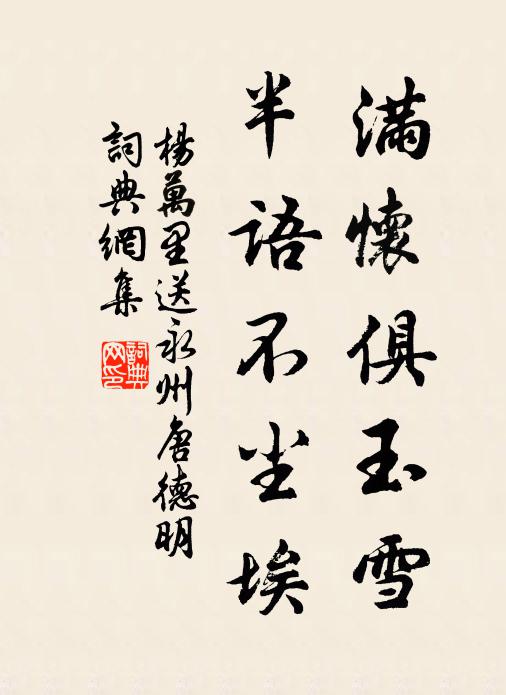 滿懷俱玉雪
半語不尘埃
楊萬里送永州唐德明
詞典網集
詞典网印